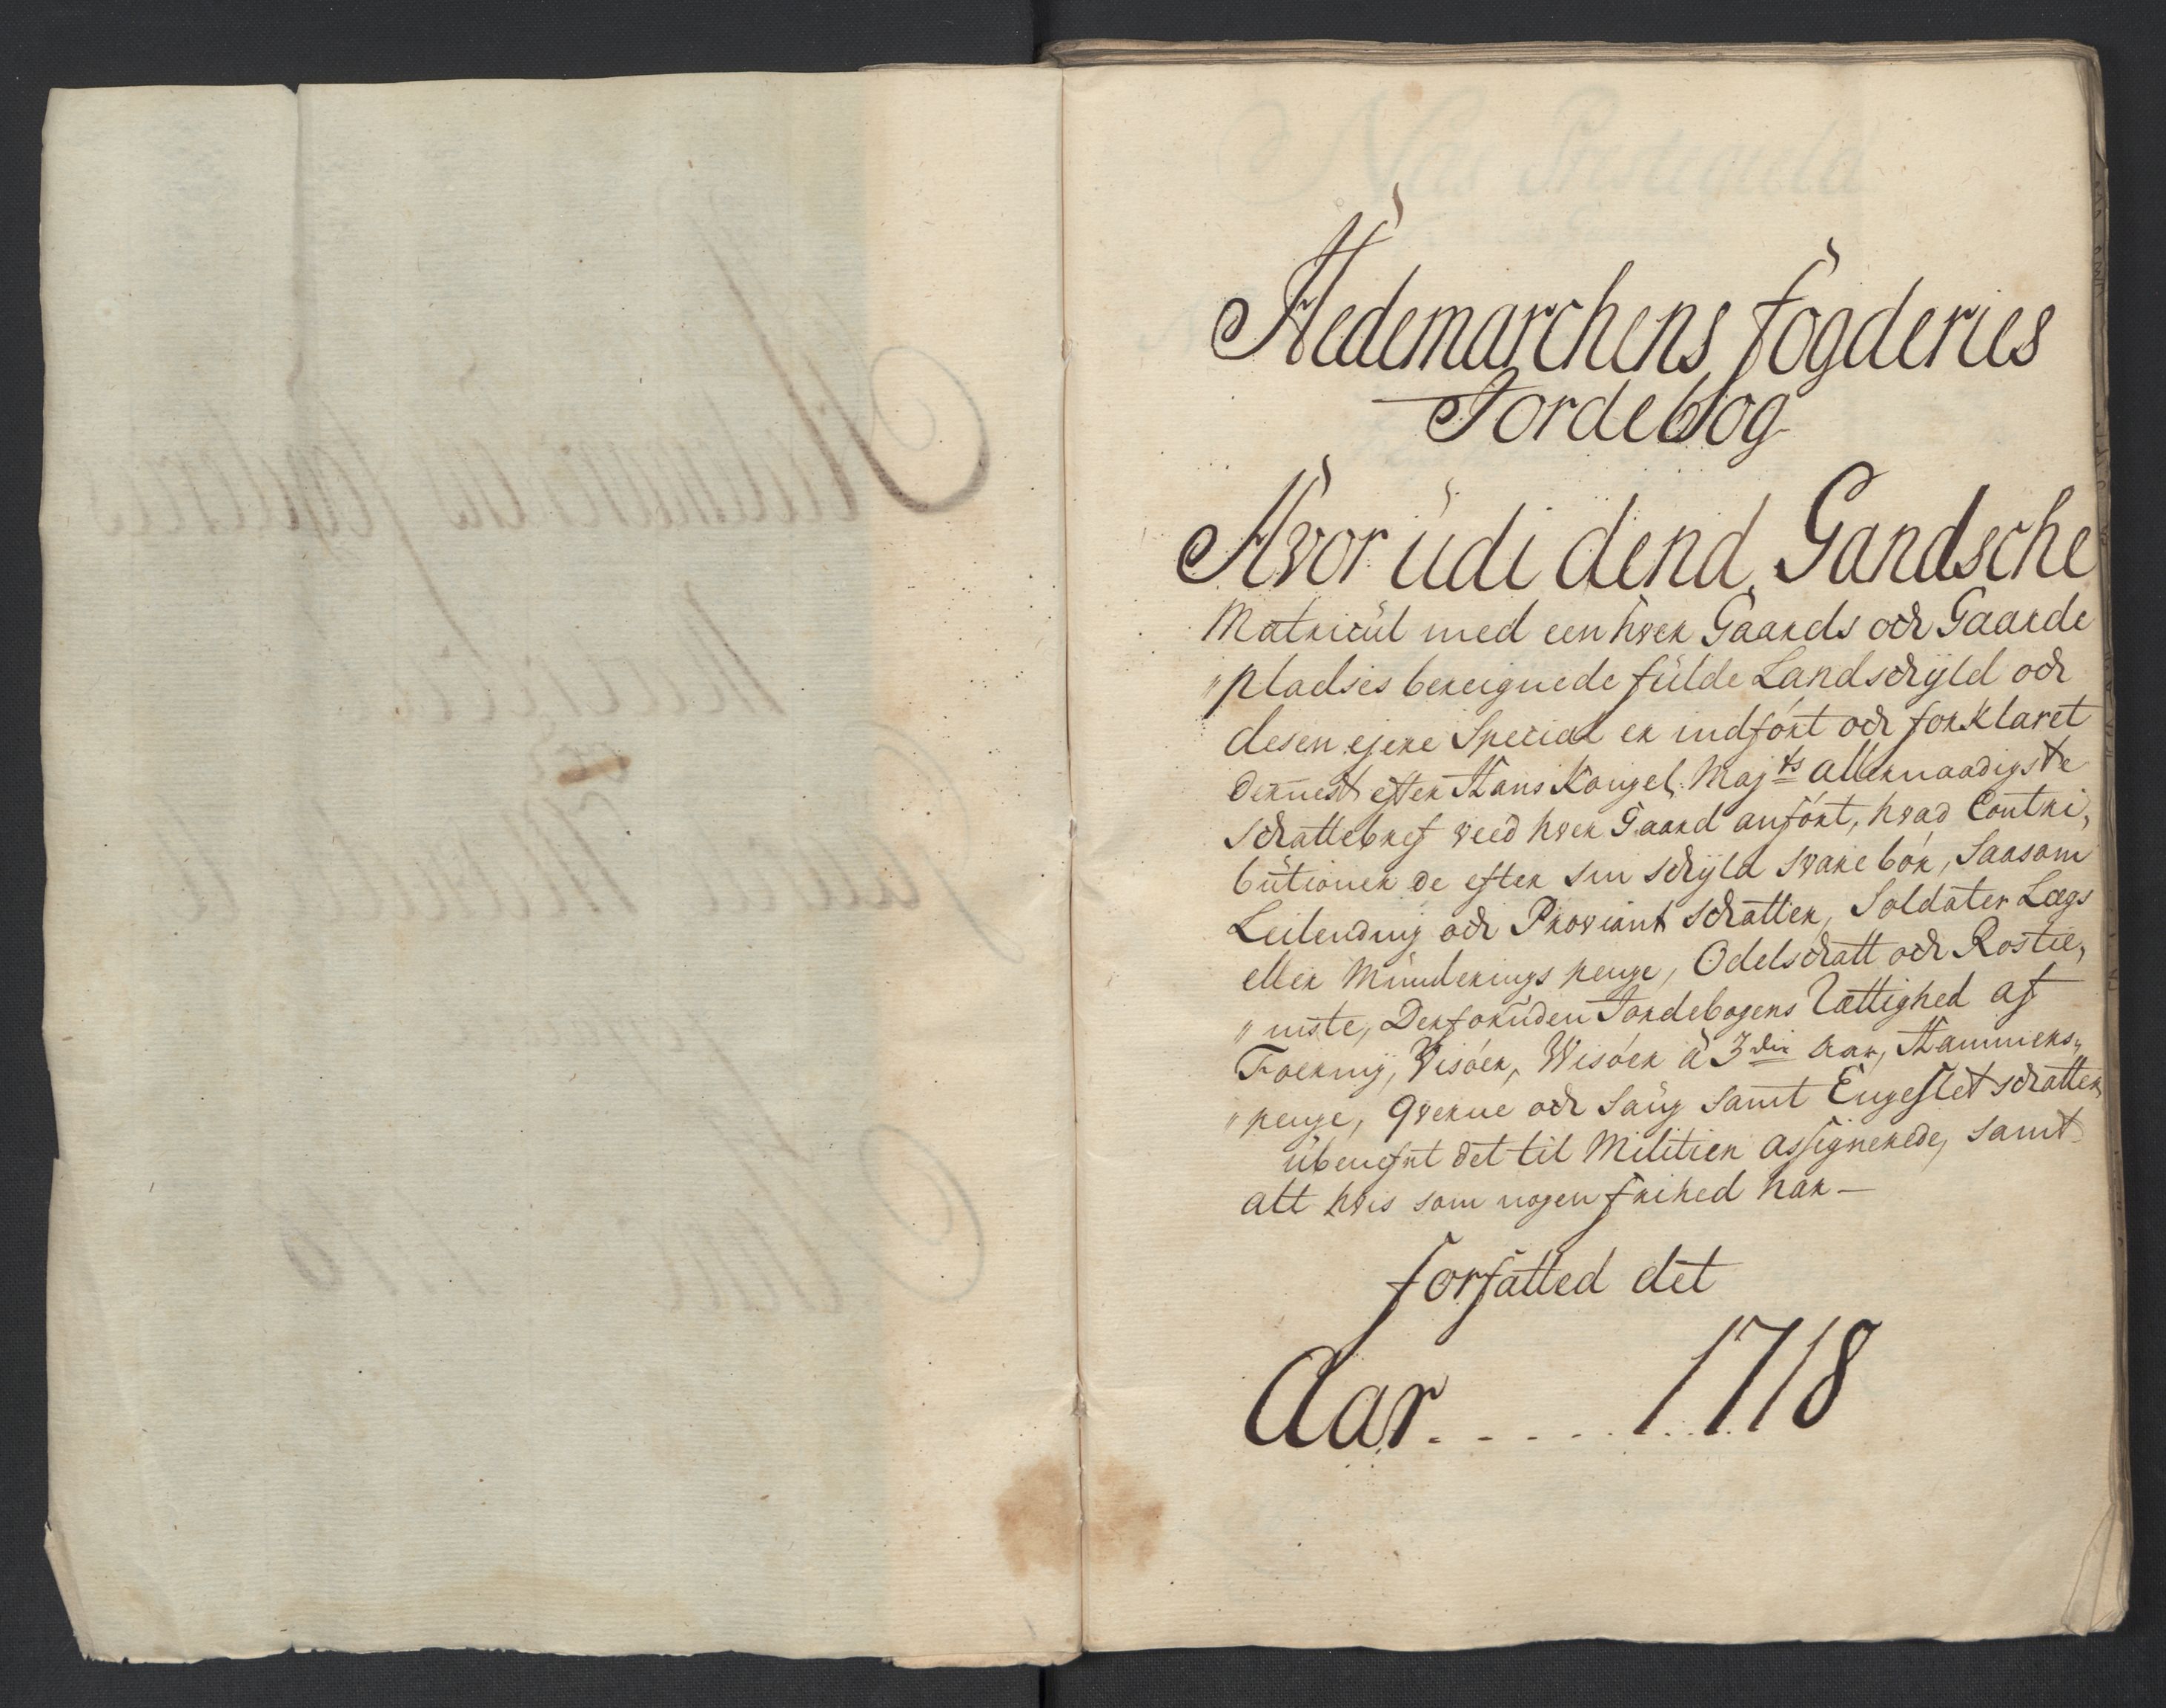 Hedemarchens fogderies
Jordebog
Hvor üdi dend Gandsche
Matricül med een hver Gaards och Gaarde
„pladses bereignede fülde Landschyld och
desen ejere Special er indført och forklaret
dernest efter Hans Kongel: Maj:ts allernaadigste
schattebref veed hver Gaard anført, hvad Contri,
bütioner de efter sin schyld svare bør, Saasom
Leilending och Proviant schatter, Soldater Lægs
eller Münderings penge, Odelschatt och Rostie,
„niste, Derforüden Jordebogens Rættighed af
Foering, Visøer, Wisøer à 3die Aar, Hammers„
„penge, qverne och Saug samt Engeslet schatter
übenefnt det til Militien assignerede, samt
alt hvis som nogen frihed har —
forfatted det
Aar. - - - . . 1718